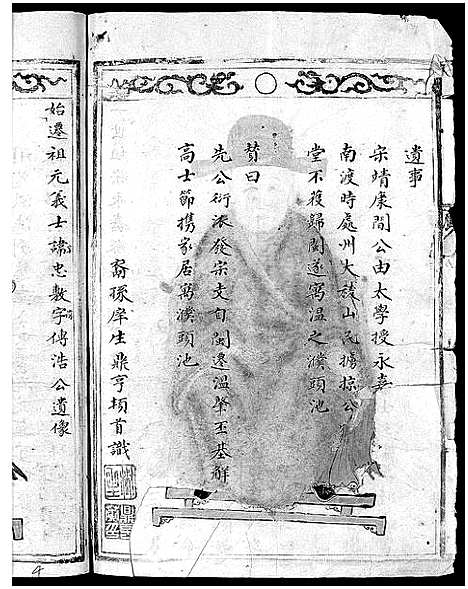 遺事
宋靖康間公由太學授永嘉
南渡時處州大㳺山民擄掠公
堂不獲歸閩遂寓溫之濮頭池
贊曰
先公衍派發宋支自閩遷溫肇丕基解
高士節携家居寓濮頭池
裔孫庠生鼎亨頓首識
始遷祖元義士諱忠敷字傳浩公遺像
4